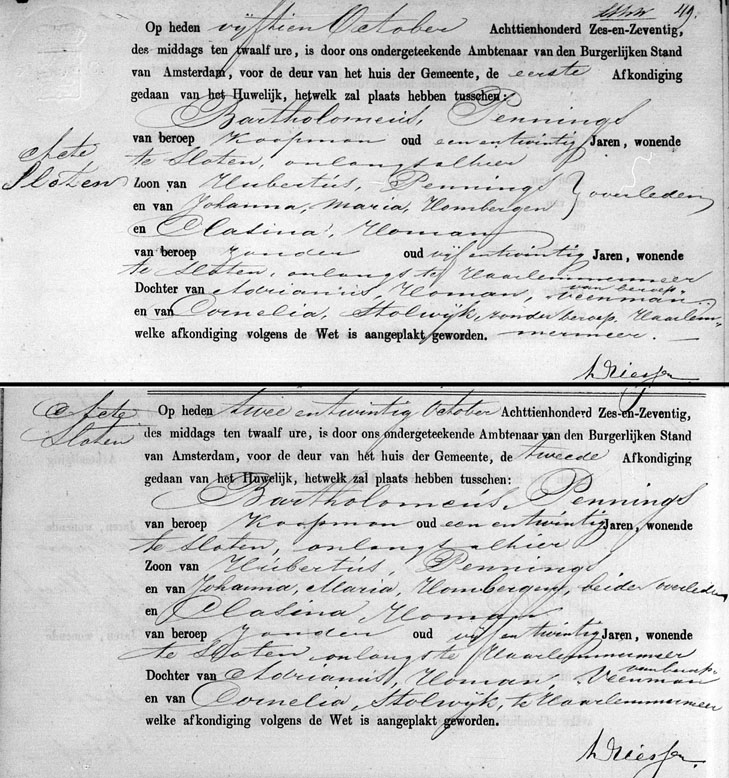 49.
Op heden vijftien October Achttienhonderd Zes-en-Zeventig,
des middags ten twaalf ure, is door ons ondergeteekende Ambtenaar van den Burgerlijken Stand
van Amsterdam, voor de deur van het huis der Gemeente, de eerste Afkondiging
gedaan van het Huwelijk, hetwelk zal plaats hebben tusschen:
Bartholomeüs, Pennings
van beroep Koopman oud een en twintig Jaren, wonende
te Sloten, onlangs alhier
Acte
Sloten
Zoon van Hubertús, Pennings } overleden
en van Johanna, Maria, Hombergen
en Clasina, Homan
van beroep zonder oud vijf en twintig Jaren, wonende
te Sloten, onlangs te Haarlemmermeer
Dochter van Adrianús, Homan, van beroep veenman
en van Cornelia, Stolwijk, zonder beroep. Haarlem-
welke afkondiging volgens de Wet is aangeplakt geworden. mermeer.
Acte
Sloten
Op heden twee en twintig October Achttienhonderd Zes-en-Zeventig,
des middags ten twaalf ure, is door ons ondergeteekende Ambtenaar van den Burgerlijken Stand
van Amsterdam, voor de deur van het huis der Gemeente, de tweede Afkondiging
gedaan van het Huwelijk, hetwelk zal plaats hebben tusschen:
Bartholomeús, Pennings
van beroep Koopman oud een en twintig Jaren, wonende
te Sloten, onlangs alhier
Zoon van Húbertús, Pennings
en van Johanna, Maria, Hombergen, beide overleden
en Clasina Homan
van beroep zonder oud vijf en twintig Jaren, wonende
te Sloten onlangs te Haarlemmermeer
Dochter van Adrianús, Homan, van beroep Veenman
en van Cornelia, Stolwijk, te Haarlemmermeer
welke afkondiging volgens de Wet is aangeplakt geworden.